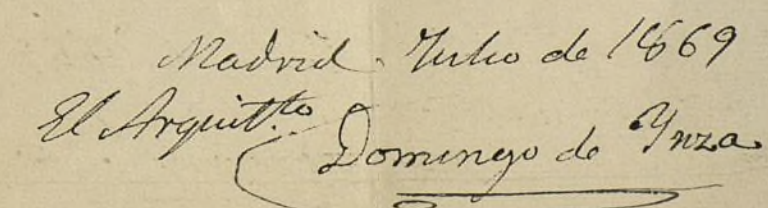 Madrid Julio de 1869
El Arquitto
Domingo de Ynza